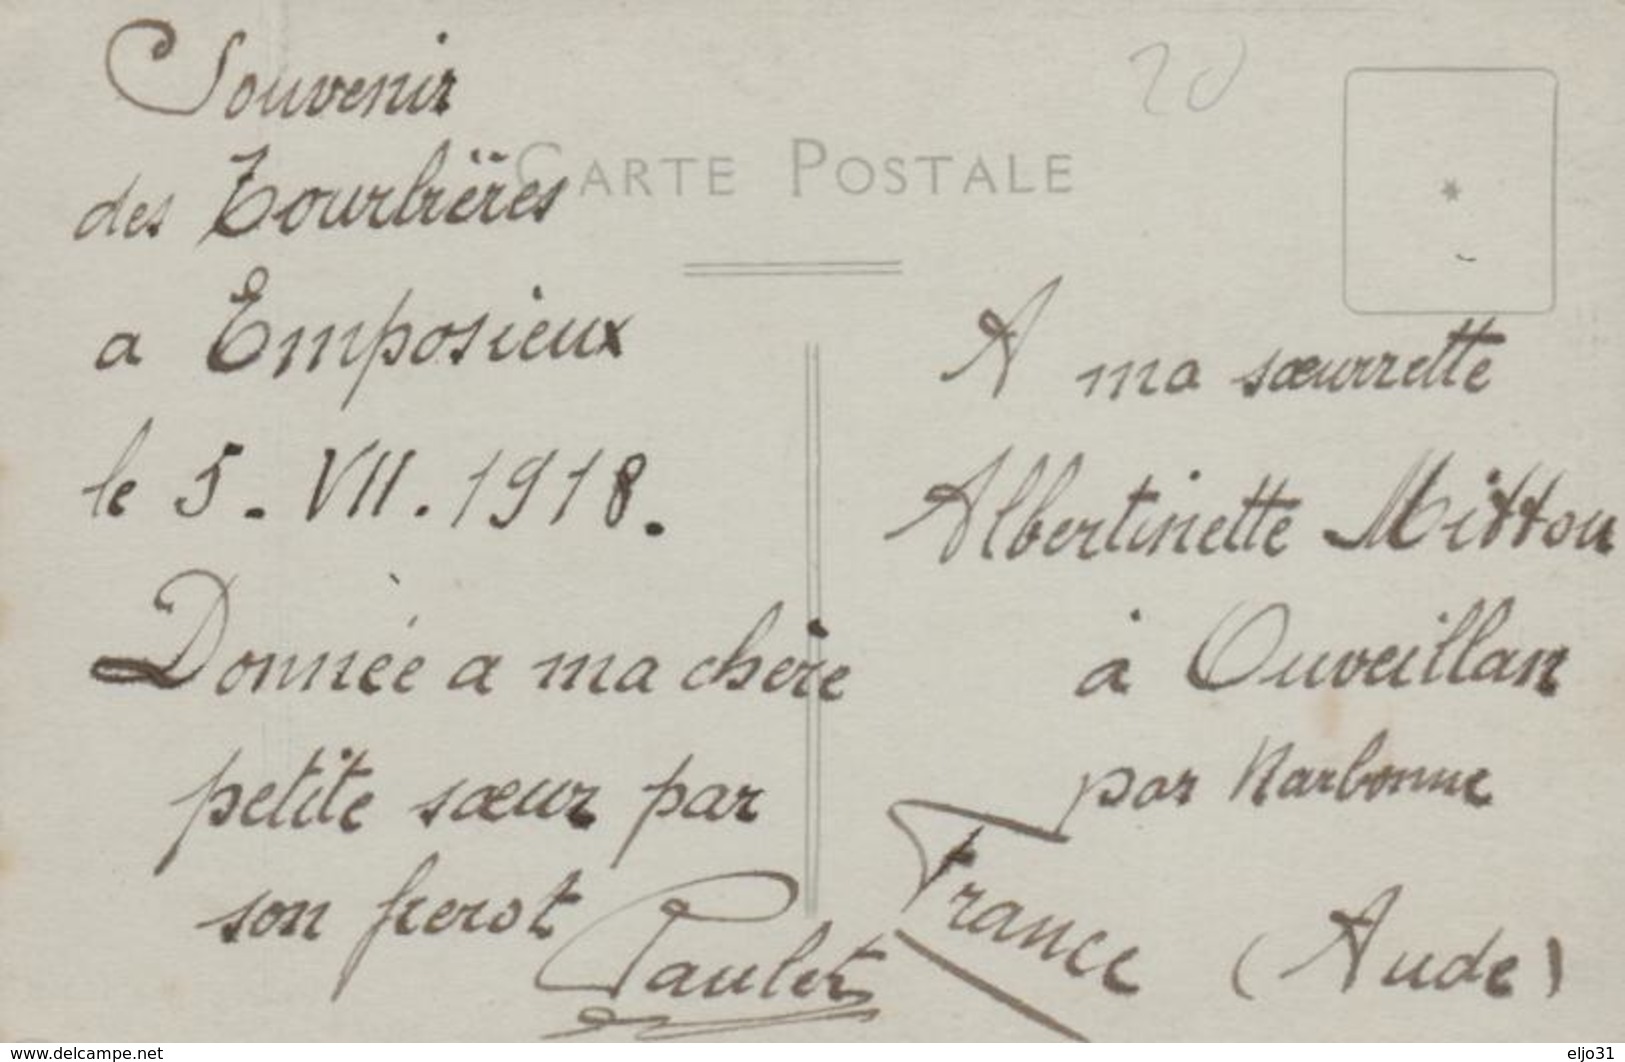 Souvenir
des Tourbières
a Emposieux
le 5. VII. 1918.
Donnée a ma chère
petite sœur par
son frerot Paulet
20
CARTE POSTALE
A ma sœurrette
Albertinette Mitton
à Ouveillan
par Narbonne
France (Aude)
www.delcampe.net
eljo31